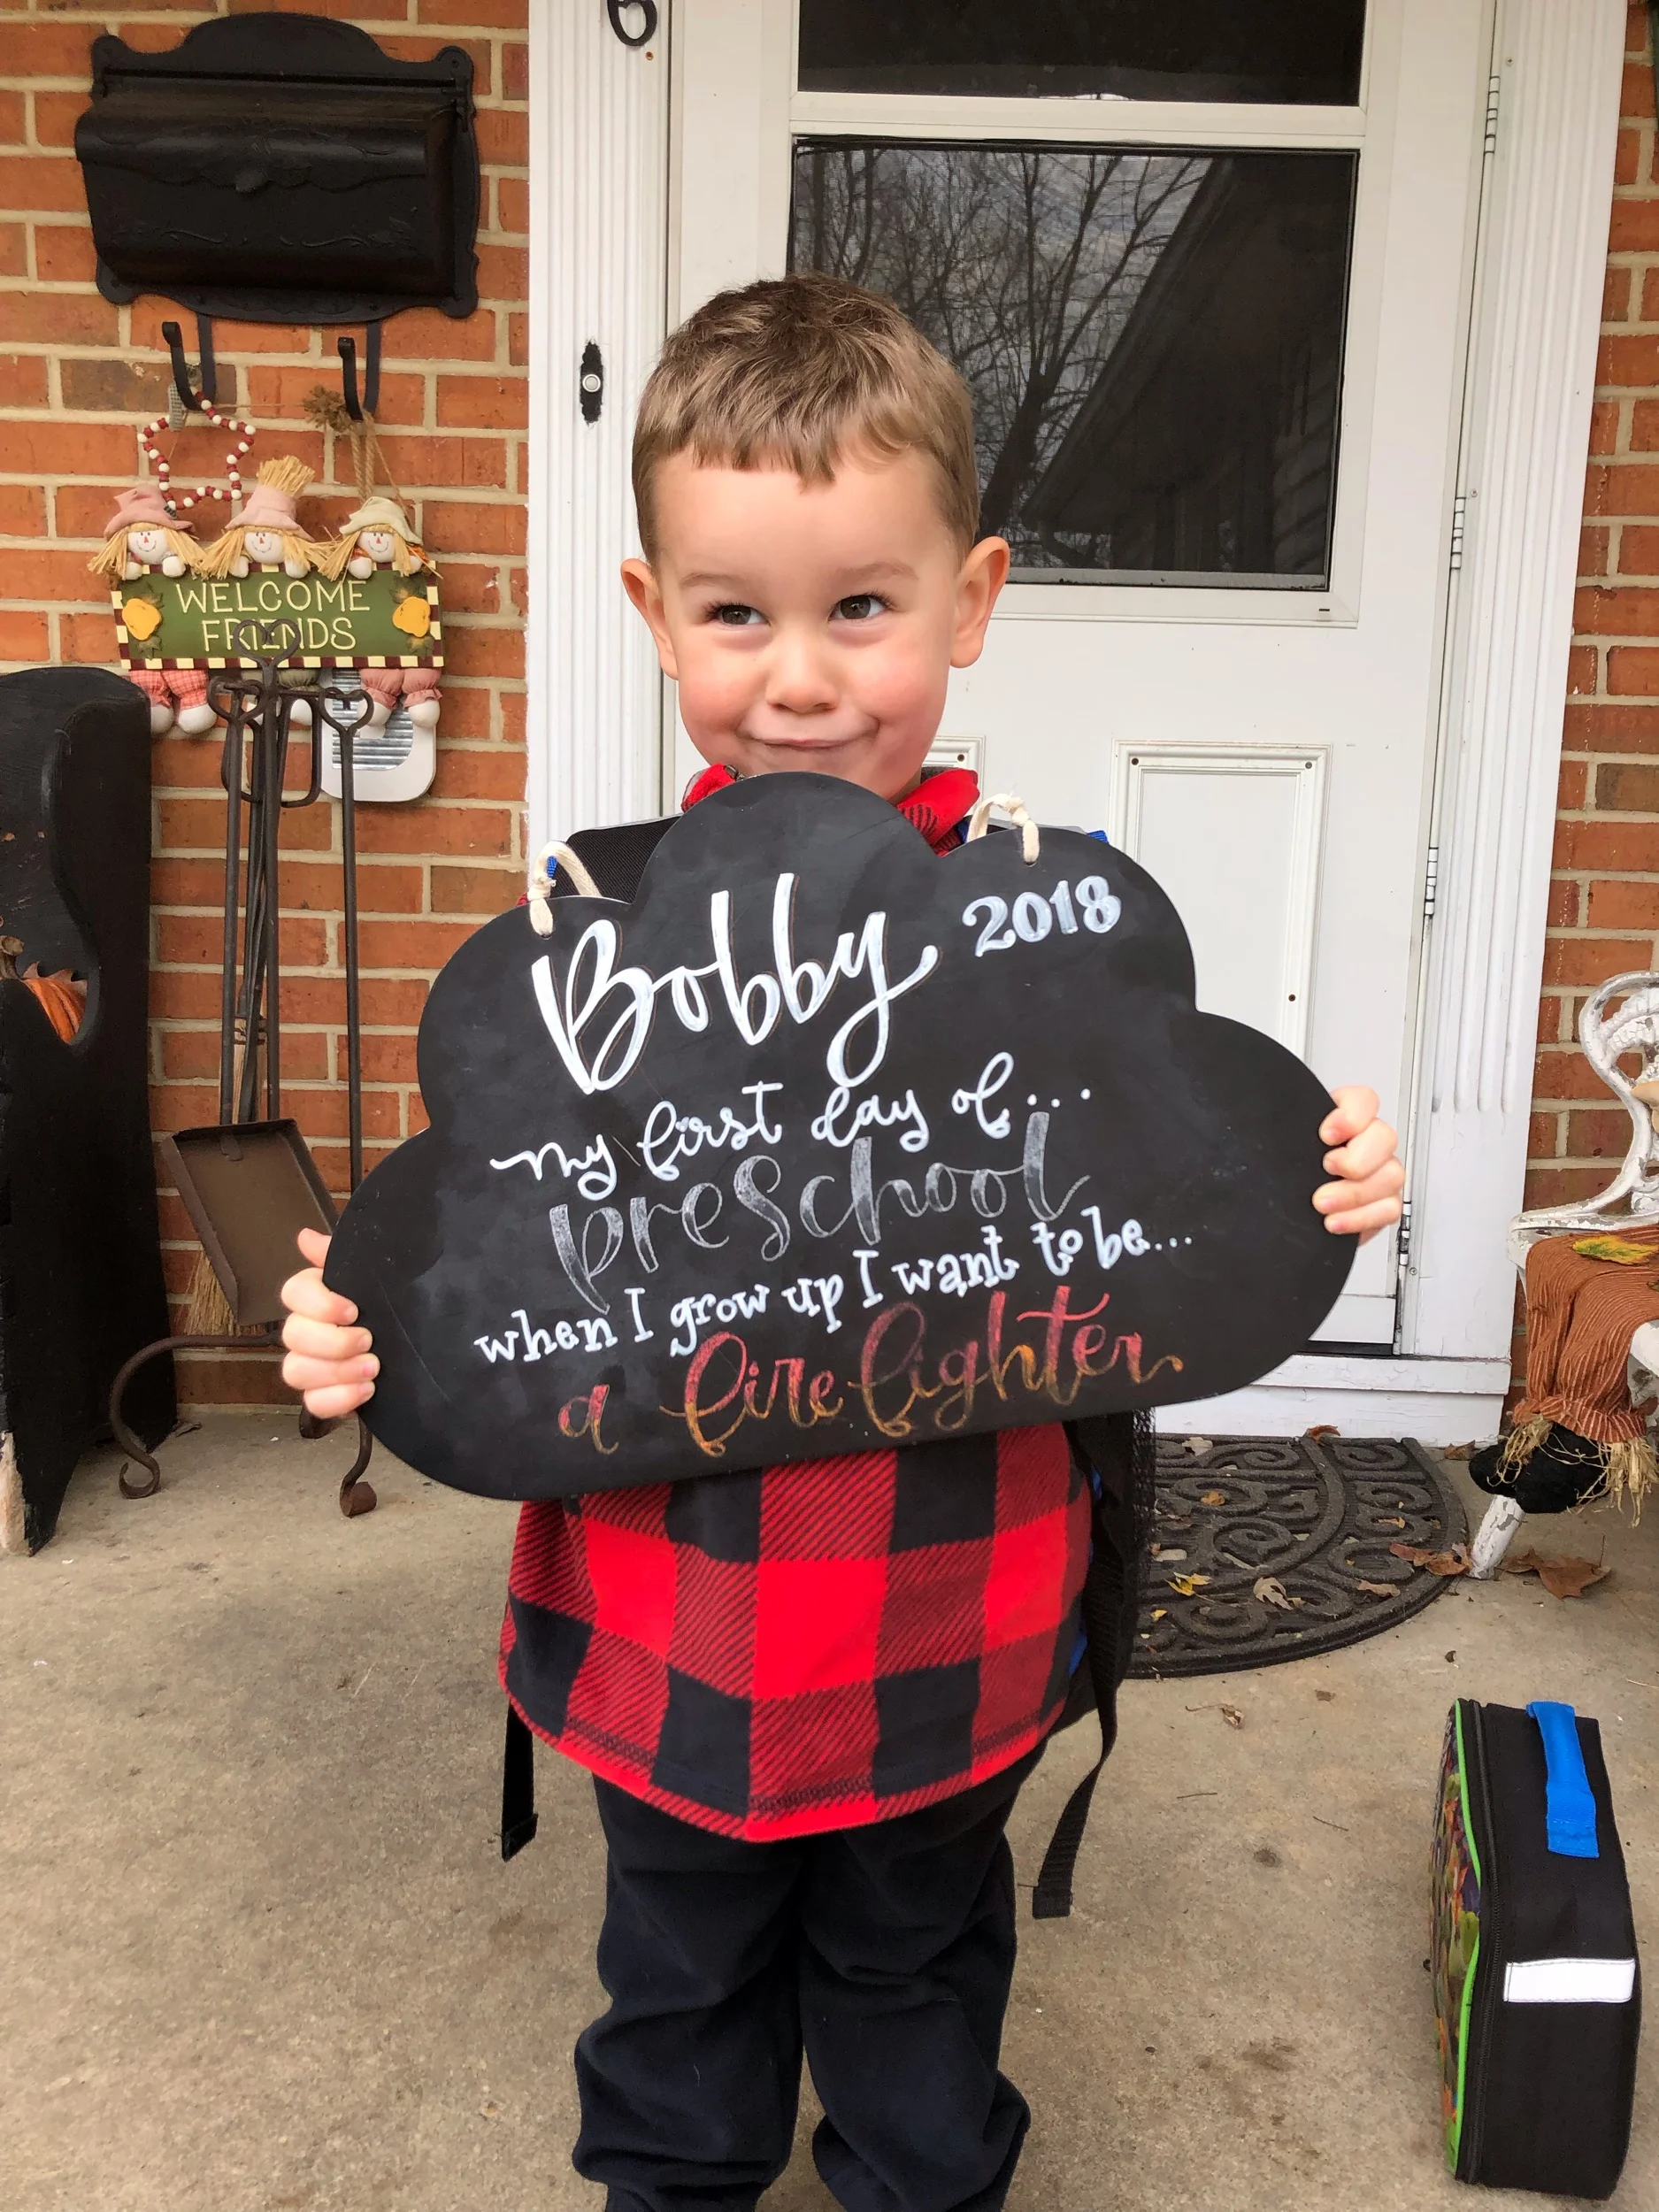 6
WELCOME
FRIENDS
Bobby 2018
my first day of...
preschool
when I grow up I want to be...
a firefighter